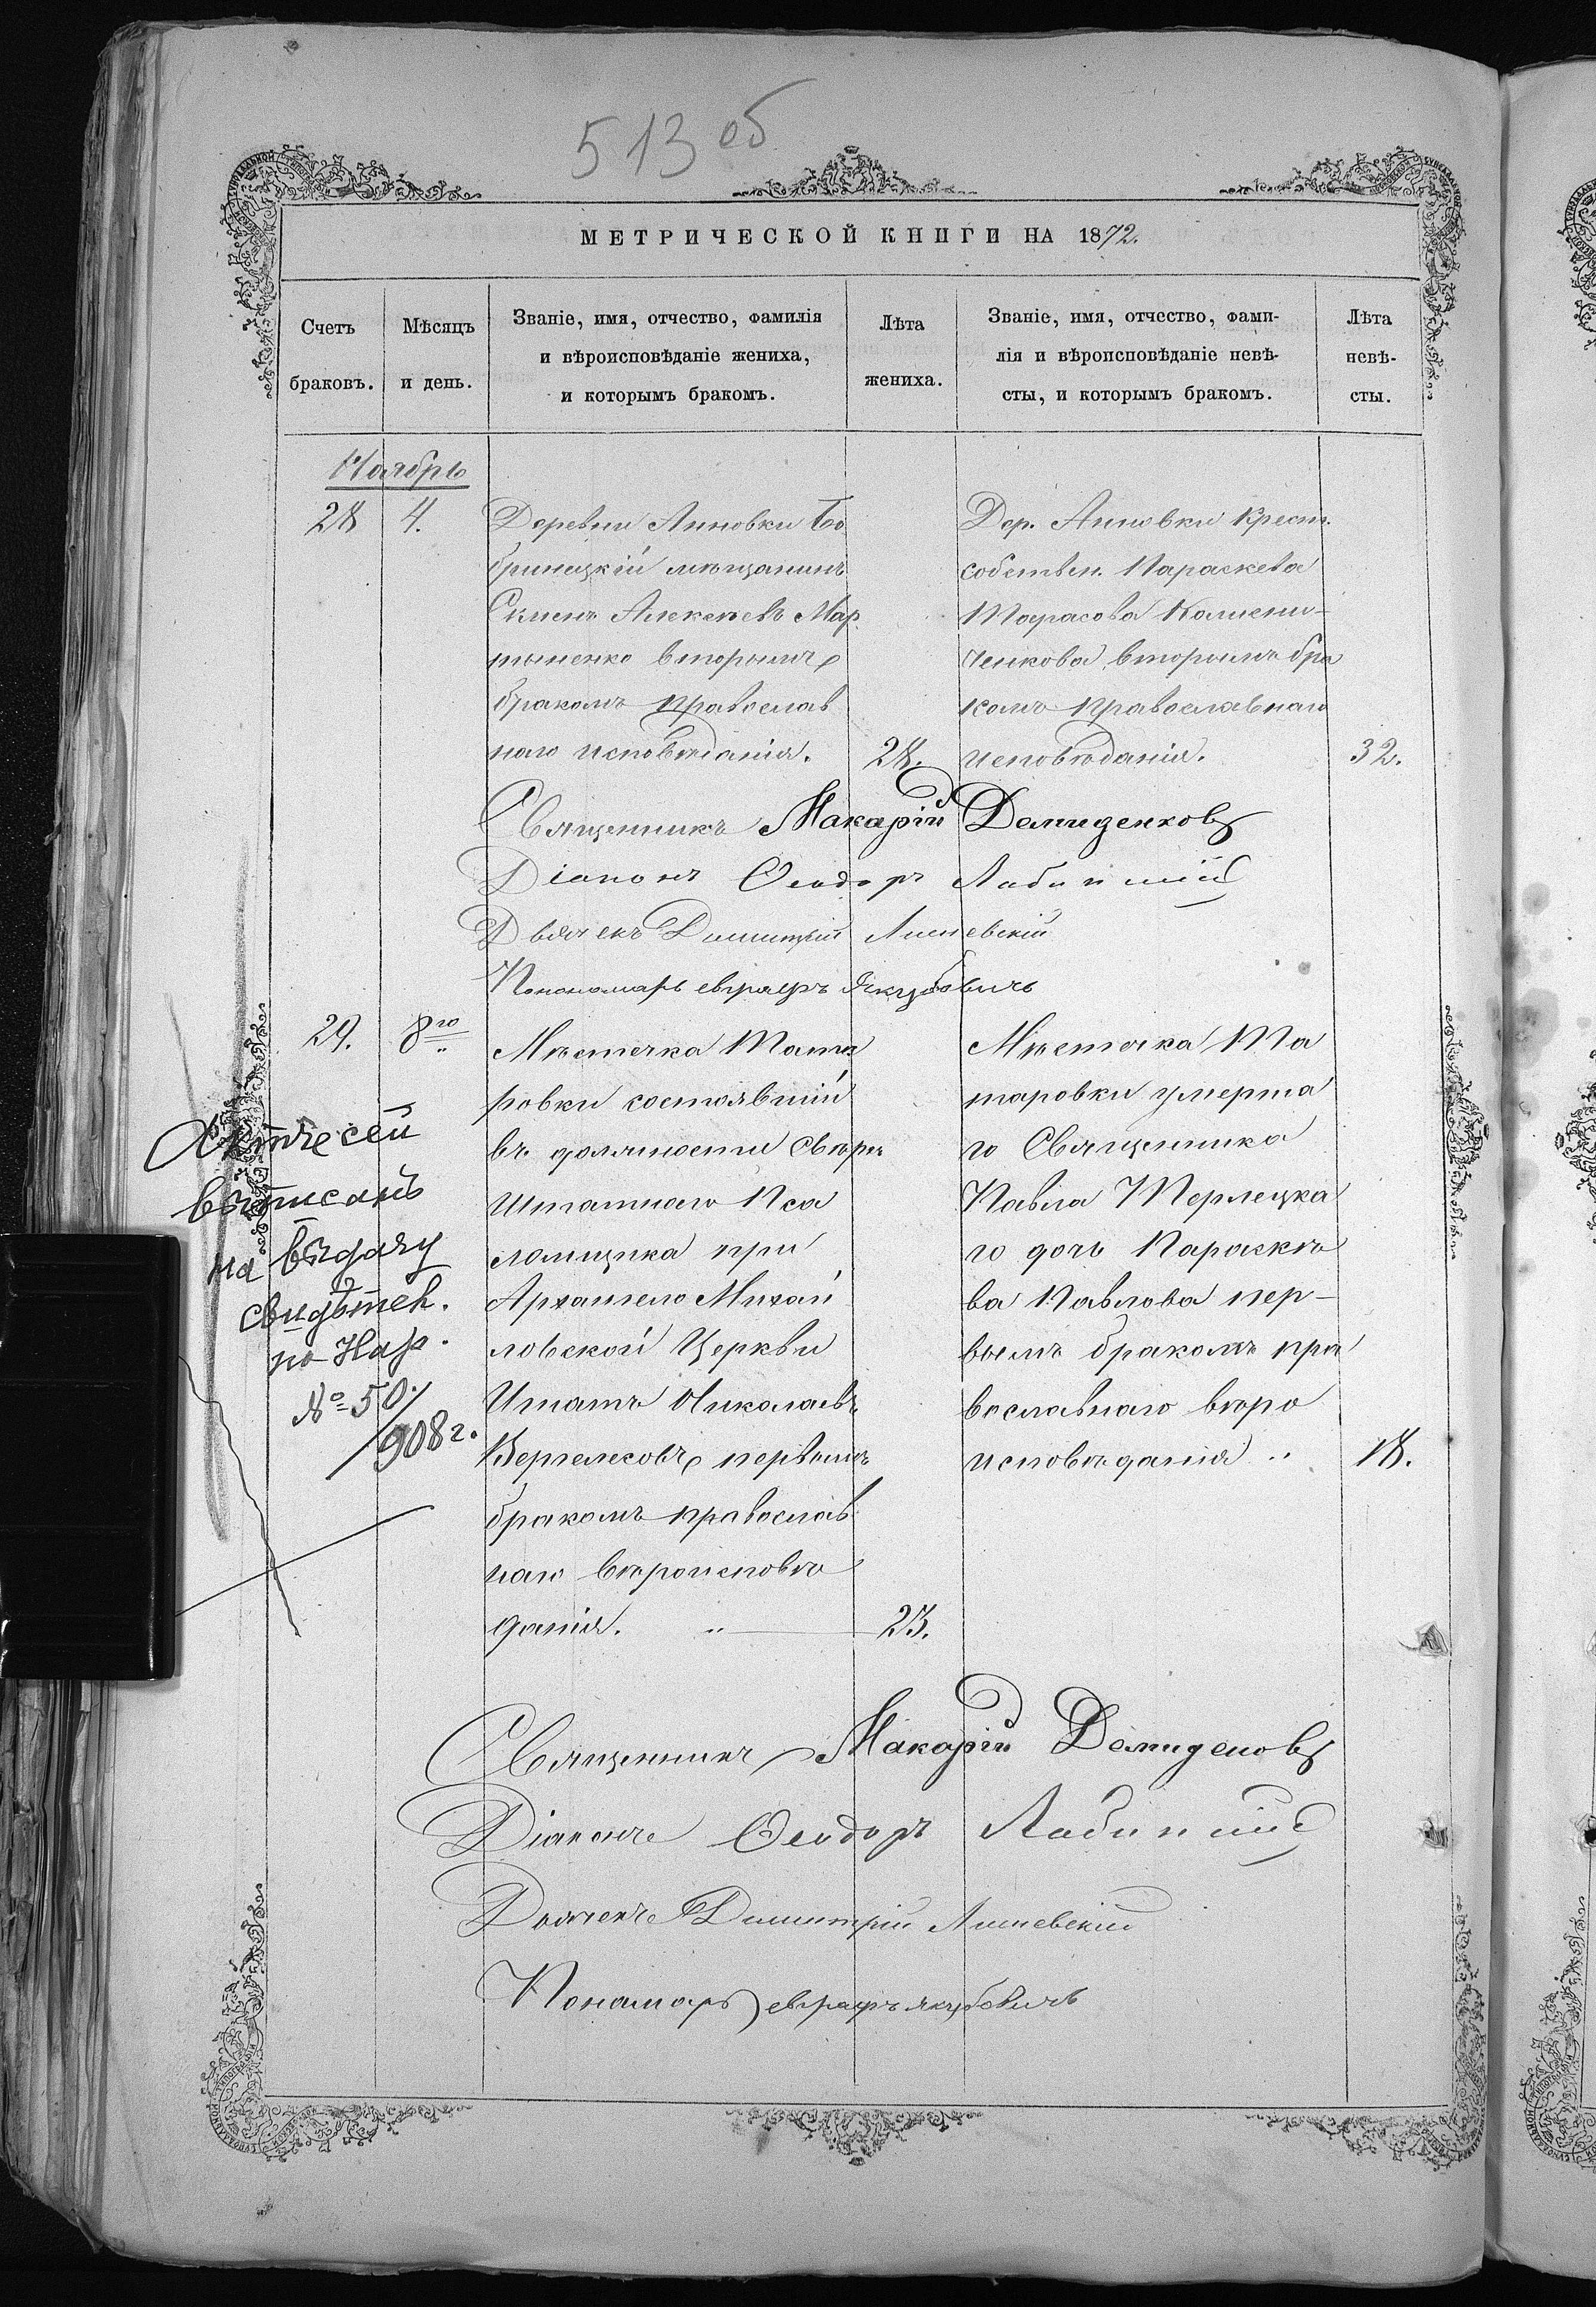 513 об
МЕТРИЧЕСКОЙ КНИГИ НА 1872.
Счетъ браковъ.
Мѣсяцъ и день.
Званіе, имя, отчество, фамилія
и вѣроисповѣданіе жениха,
и которымъ бракомъ.
Лѣта жениха.
Званіе, имя, отчество, фами-
лія и вѣроисповѣданіе невѣ-
сты, и которымъ бракомъ.
Лѣта невѣ-
сты.
Ноябрь
28 4.
Деревни Анновки Бо
бринецкій мѣщанинъ
Алексѣевъ Мар
тыненко вторымъ
бракомъ православ
наго исповѣданія.
28.
Дер. Анновки Крест.
собствен. Параскева
Тарасова
вторымъ бра
комъ православнаго
исповѣданія.
32.
Священникъ Макарій Демиденковъ
Діаконъ Ѳеодоръ
Дьячекъ Димитрій
Пономарь евграфъ Якубовичъ
29. 8го
Мѣстечка Тата
ровки состоявшій
въ должности Сверхъ
Штатнаго Пса
ломщика при
Архангело Михай
ловской Церкви
Игнатъ Николаевъ
Вергелесовъ первымъ
бракомъ православ
наго вѣроисповѣ
данія.
23.
Мѣстечка Та
таровки умерша
го Священника
Павла Терлецка
го дочь Параскѣ
ва Павлова пер-
вымъ бракомъ пра
вославнаго вѣро
исповѣданія
18.
Актъ сей
выписанъ
на выдачу
свидѣтел.
по Нар.
№ 50/
908 г.
Священникъ Макарій Демиденковъ
Діаконъ Ѳеодоръ
Дьячекъ Димитрій
Понамарь евграфъ якубовичъ